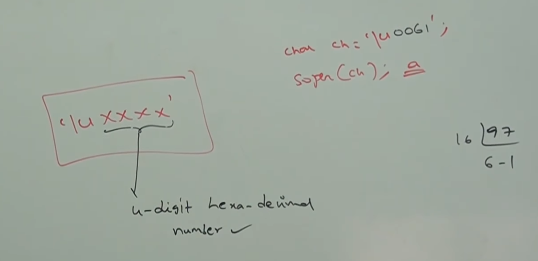 char ch = '\u0061';
sopln(ch); a
'\u xxxx'
4-digit hexa-decimal
number ✓
16 | 97
6-1